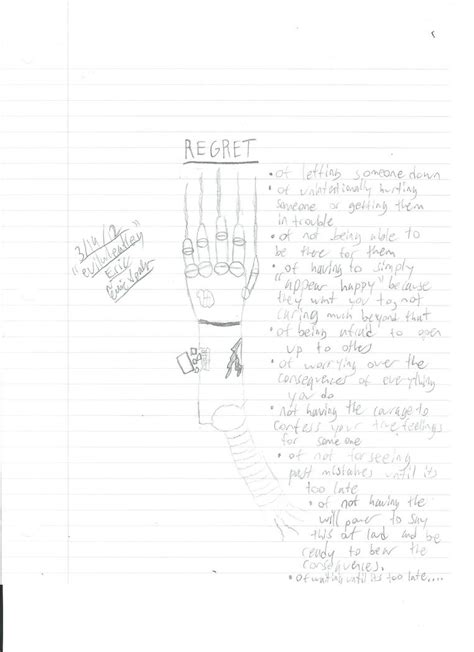 REGRET
• of letting someone down
• of unintentionally hurting
someone or getting them
in trouble
• of not being able to
be there for them
• of having to simply
"appear happy" because
they want you to, not
caring much beyond that
• of being afraid to open
up to others
• of worrying over the
consequences of everything
you do
• not having the courage to
confess your true feelings
for someone
• of not forseeing
past mistakes until its
too late
• of not having the
will power to say
this out loud and be
ready to bear the
consequences.
• of waiting until its too late....
Eric